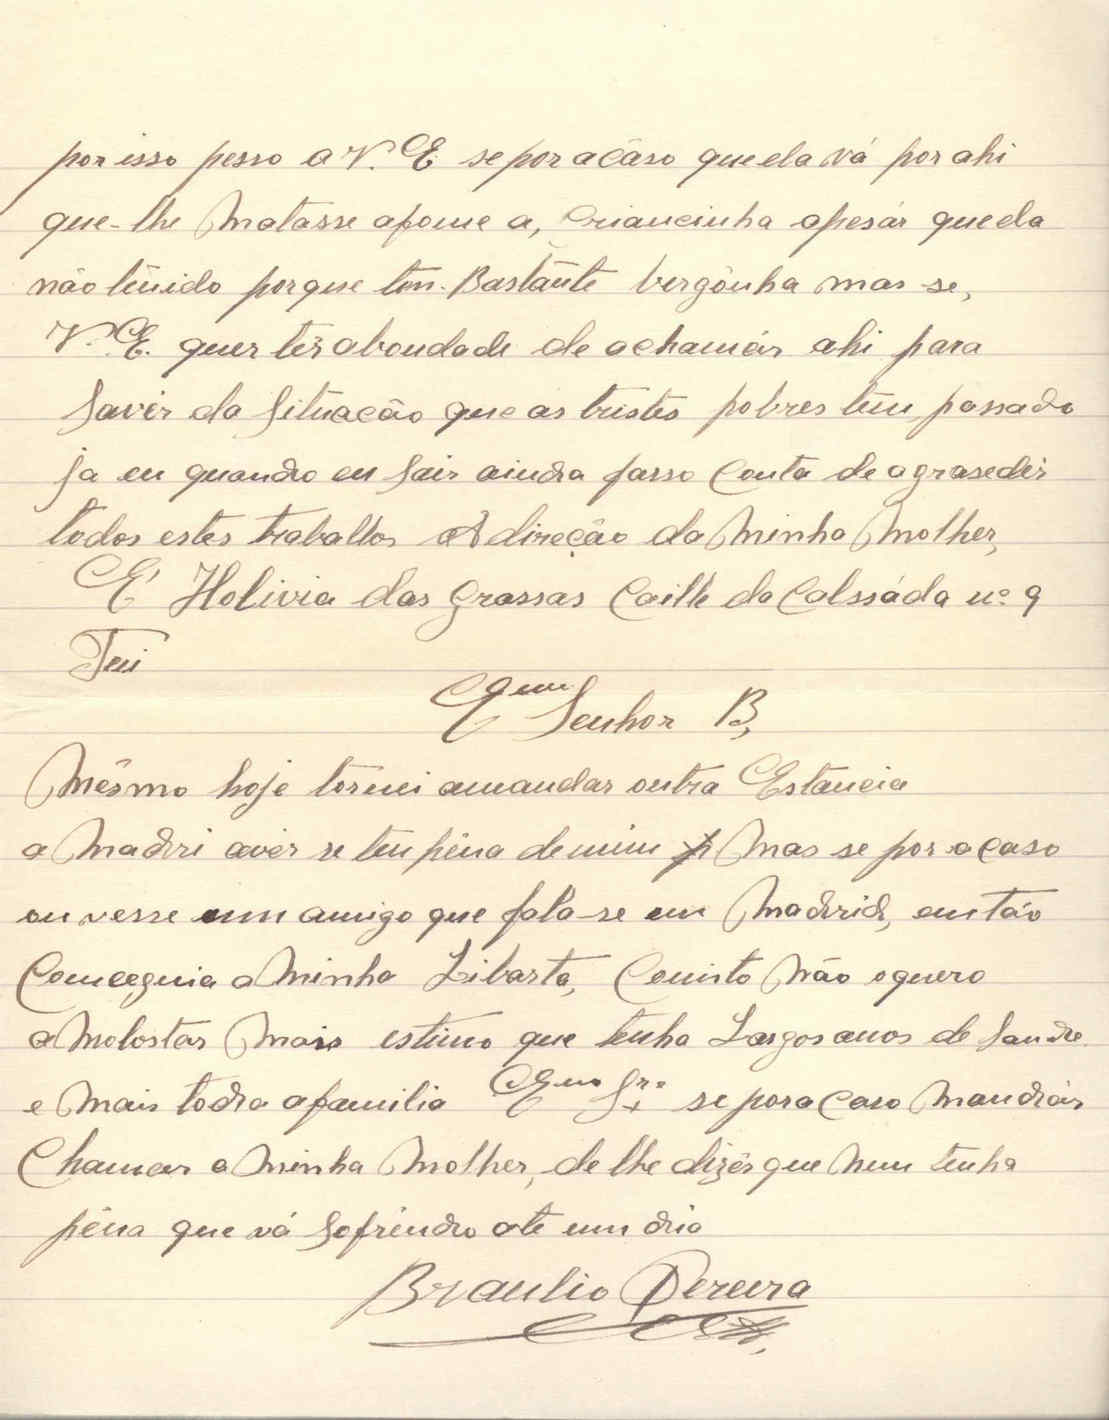 por isso pesso a V.E se por acâso que ela vá por ahi
que-lhe Matasse afome a, Criancinha apesár que ela
não têm ido porque tên. Bastânte bergônha mas se,
V.E. quer têr abondade de achamár ahi para
Savêr da Situacão que as tristês pobres têm passado
ja eu quando eu Sair ainda fasso Conta de agrasedêr
todos estes traballos A direção da Minha Molher,
É Holivia das Grassas Caille da Calssáda nº 9
Tui
Senhor B,
Mêsmo hoje tornei amandar outra Estancia
a Madri avêr se tên pêna de mim Mas se por acaso
ouvesse um amigo que fala-se em Madrid, então
Conceguia a Minha Libarta, Comito Não oquero
a Molostar Mais estimo que tenha Largos anos de Saude
e Mais toda afamilia Emo Sr. se por a Caso Mandár
Chamar a Minha Molher, de lhe dizêr que Nem tenha
pêna que vá Sofrêndo ate um dia
Braulio Pereira